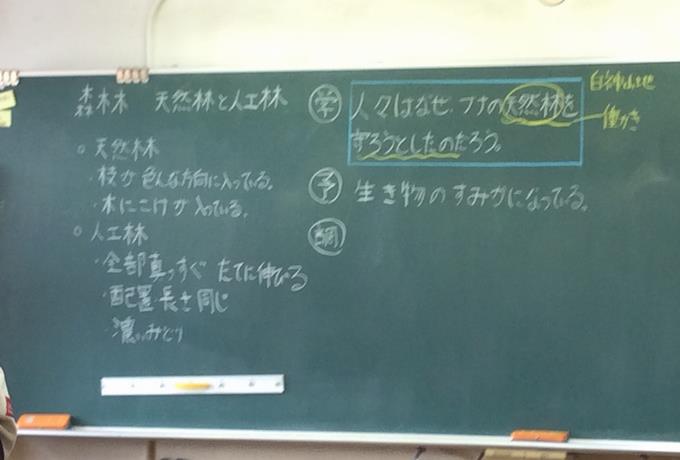 森林 天然林と人工林
○天然林
・枝が色んな方向に入っている。
・木にこけが入っている。
○人工林
・全部真っすぐたてに伸びる
・配置長さ同じ
・濃いみどり
学 人々はなぜ、ブナの天然林を
守ろうとしたのだろう。
白神山地
働き
予 生き物のすみかになっている。
調